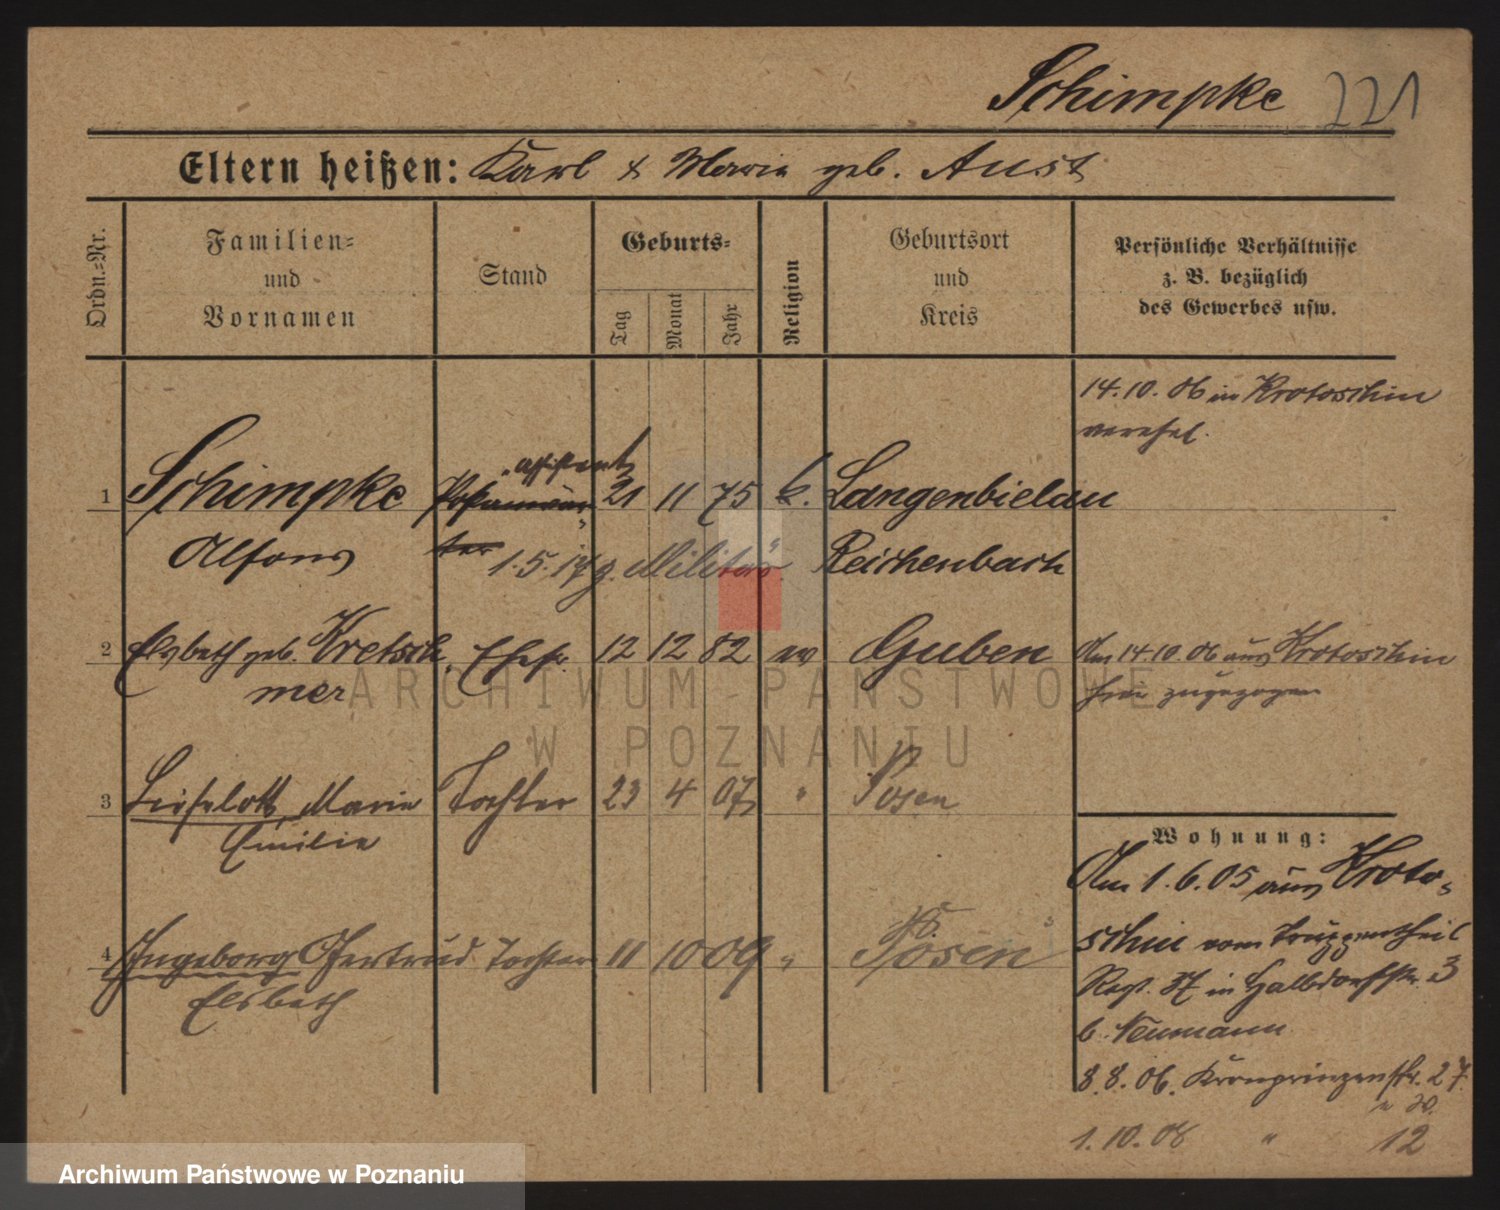 Schimpke 221
Eltern heißen: Karl & Maria geb. Aust
Ordn.=Nr.
Familien=
und
Vornamen
Stand
Geburts=
Tag
Monat
Jahr
Religion
Geburtsort
und
Kreis
Persönliche Verhältnisse
z. B. bezüglich
des Gewerbes usw.
14.10.06 in Krotoschin
verehel.
assistent
1 Schimpke Postanwär= 21 11 75 k. Langenbielau
Alfons ter 1.5.17 z. Militär Reichenbach
2 Elsbeth geb. Kretsch Ehefr. 12 12 82 ev Guben Am 14.10.06 aus Krotoschin
mer hier zugezogen
3 Lieselott, Marie Tochter 23 4 07 " Posen
Emilie
Wohnung:
Am 1.6.05 aus Kroto=
schin vom Truppentheil
4 Ingeborg Gertrud Tochter 11 10 09 " Posen
Elsbeth
Regt. 37 in Halbdorfstr. 3
b. Neumann
8.8.06. Kronprinzenstr. 27
1.10.08 " 12
ARCHIWUM PAŃSTWOWE
W POZNANIU
Archiwum Państwowe w Poznaniu